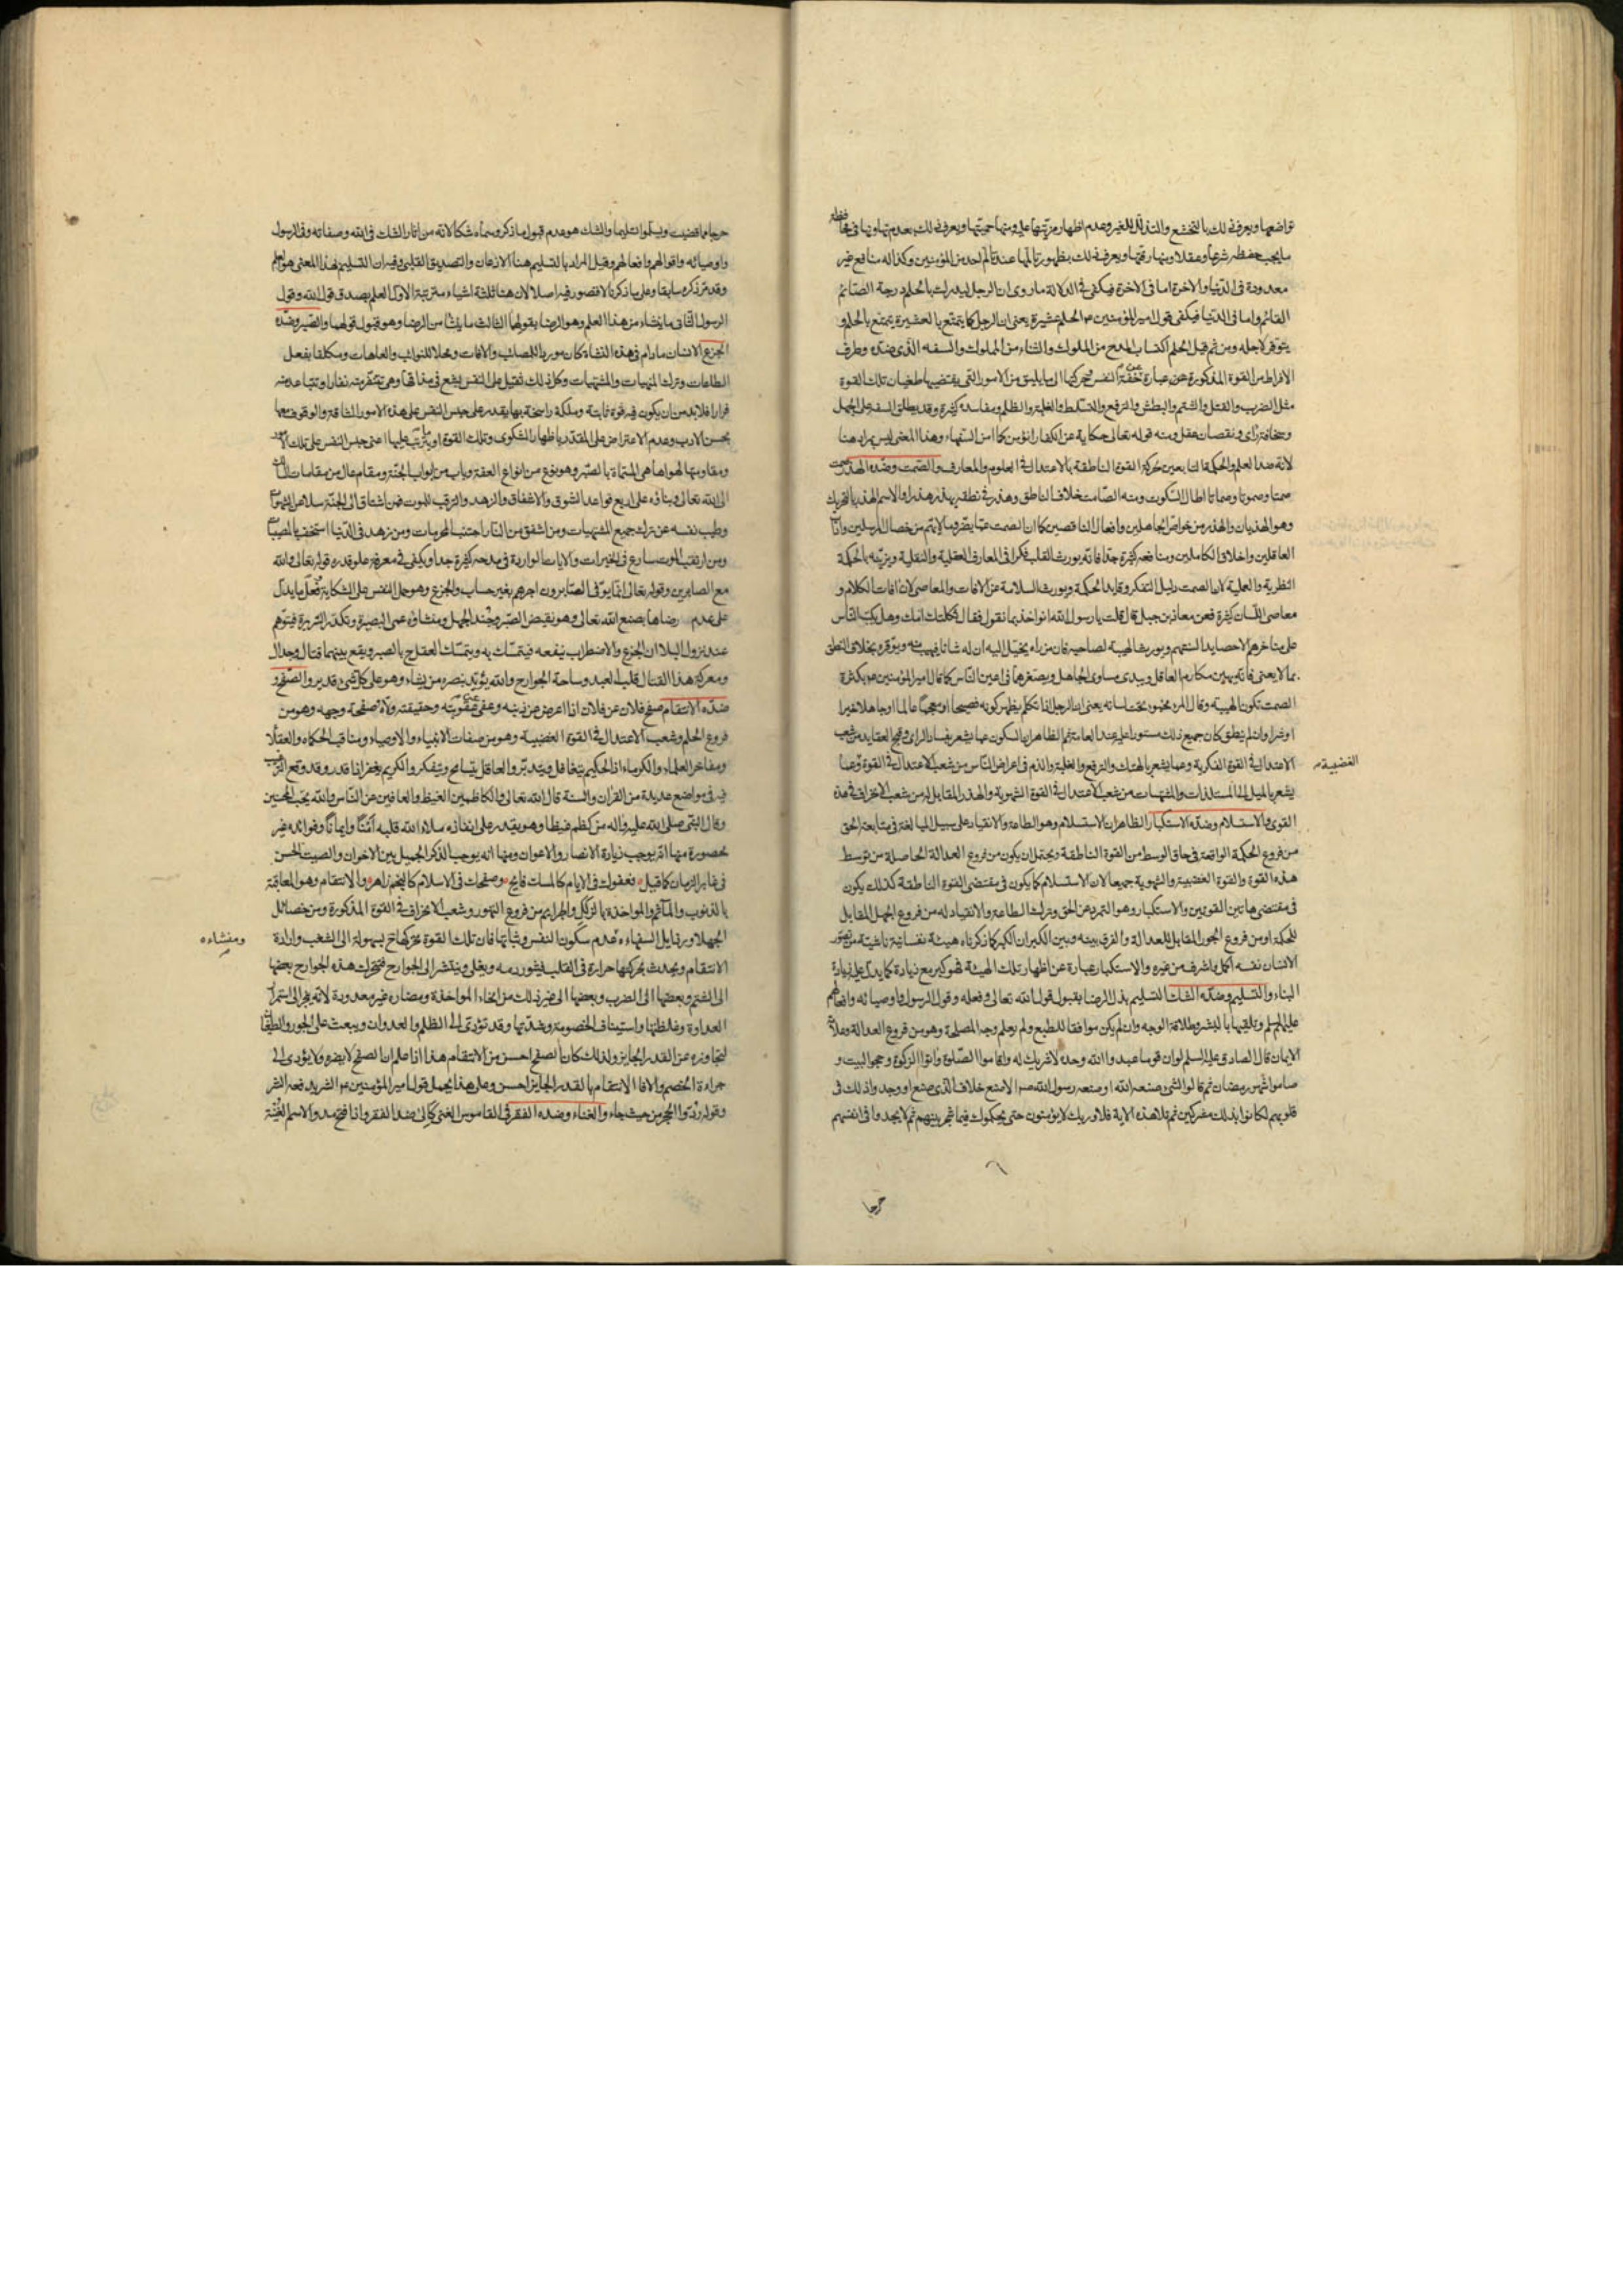 تواضعها ويعرف ذلك بالتخشع والتذلل للغير وعدم اظهار مزيتها عليه ومنها حميتها ويعرف ذلك بعدم تهاونها في محافظة
ما يجب حفظه شرعا وعقلا ومنها رقتها ويعرف ذلك بظهور تالمها عند تالم احد من المؤمنين وكذا له منافع غير
معدودة في الدنيا والاخرة اما في الاخرة فيكفى في الدلالة ما روى ان الرجل ليدرك بالحلم درجة الصائم
القائم واما في الدنيا فيكفى قول امير المؤمنين ع الحلم عشيرة يعنى ان الرجل كما يتمتع بالعشيرة يتمتع بالحلم و
يتوقر لاجله ومن ثم قيل الحلم اكتساب المدح من الملوك والثناء من المملوك والسفه الذى ضده وطرف
الافراط من القوة المذكورة عبارة عن خفة النفس وحركتها الى ما يليق من الامور التى يقتضيها طغيان تلك القوة
مثل الضرب والقتل والشتم والبطش والترفع والتسلط والغلبة والظلم ومفاسده كثيرة وقد يطلق السفه على الجهل
وسخافة راى ونقصان عقل ومنه قوله تعالى حكاية عن الكفار انؤمن كما امن السفهاء وهذا المعنى ليس بمراد هنا
لانه ضد العلم والحكمة التابعين لحركة القوة الناطقة بالاعتدال في العلوم والمعارف والصمت وضده الهذر صمت
صمتا وصموتا وصماتا اطال السكوت ومنه الصامت خلاف الناطق وهذر في نطقه يهذر هذرا والاسم الهذر بالتحريك
وهو الهذيان والهذر من خواص الجاهلين وافعال الناقصين كما ان الصمت عما يضر وما لا يتم من خصال المرسلين واداب
العاقلين واخلاق الكاملين ومنافعه كثيرة جدا فانه يورث القلب فكرا في المعارف العقلية والنقلية ويزينه بالحكمة
النظرية والعملية لان الصمت دليل التفكر وقايد الحكمة ويورث السلامة عن الافات والمعاصى لان افات الكلام و
معاصى اللسان كثيرة فعن معاذ بن جبل قال قلت يا رسول الله انواخذ بما نقول فقال ثكلتك امك وهل يكب الناس
على مناخرهم الا حصايد السنتهم ويورث الهيبة لصاحبه فان من راه يخيل اليه ان له شانا فيهيب منه ويوقره بخلاف النطق
بما لا يعنى فانه يهين مكارم العاقل ويبدى مساوى الجاهل ويصغرهما في اعين الناس كما قال امير المؤمنين ع بكثرة
الصمت تكون الهيبة وقال المرء مخبوء تحت لسانه يعنى ان الرجل اذا تكلم يظهر كونه فصيحا او معجما عالما او جاهلا خيرا
او شرا وان لم ينطق كان جميع ذلك مستورا عليه عند العامة ثم الظاهر ان السكون عما يشعر بفساد الراى وقبح العقايد من شعب
الاعتدال في القوة الفكرية وعما يشعر بالهتك والترفع والغلبة والذم في اعراض الناس من شعب الاعتدال في القوة وعما
الغضبية
يشعر بالميل الى المستلذات والمشتهيات من شعب الاعتدال في القوة الشهوية والهذر المقابل له من شعب الانحراف في هذه
القوى والاستسلام وضده الاستكبار الظاهر ان الاستسلام وهو الطاعة والانقياد على سبيل المبالغة في متابعة الحق
من فروع الحكمة الواقعة في حاق الوسط من القوة الناطقة ويحتمل ان يكون من فروع العدالة الحاصلة من توسط
هذه القوة والقوة الغضبية والشهوية جميعا لان الاستسلام كما يكون في مقتضى القوة الناطقة كذلك يكون
في مقتضى هاتين القوتين والاستكبار وهو التمرد عن الحق وترك الطاعة والانقياد له من فروع الجهل المقابل
للحكمة او من فروع الجور المقابل للعدالة والفرق بينه وبين الكبر ان الكبر كما ذكرناه هيئة نفسانية ناشية من تصور
الانسان نفسه اكمل واشرف من غيره والاستكبار عبارة عن اظهار تلك الهيئة فهو كبر مع زيادة كما يدل عليه زيادة
البناء والتسليم وضده الشك التسليم بذل الرضا بقبول قول الله تعالى وفعله وقول الرسول واوصيائه وافعالهم
عليهم السلم وتلقيها بالبشر وطلاقة الوجه وان لم يكن موافقا للطبع ولم يعلم وجه المصلحة وهو من فروع العدالة وعلامة
الايمان قال الصادق عليه السلم لو ان قوما عبدوا الله وحده لا شريك له واقاموا الصلوة واتوا الزكوة وحجوا البيت و
صاموا شهر رمضان ثم قالوا لشئ صنعه الله او صنعه رسول الله ص الا صنع خلاف الذى صنع او وجدوا ذلك في
قلوبهم لكانوا بذلك مشركين ثم تلا هذه الاية فلا وربك لا يؤمنون حتى يحكموك فيما شجر بينهم ثم لا يجدوا في انفسهم
حرجا
حرجا مما قضيت ويسلموا تسليما والشك هو عدم قبول ما ذكر وسماه شكا لانه من اثار الشك في الله وصفاته وفي الرسول
واوصيائه واقوالهم وافعالهم وقيل المراد بالتسليم هنا الاذعان والتصديق القلبى وفيه ان التسليم بهذا المعنى هو العلم
وقد مر ذكره سابقا وعلى ما ذكرنا لا قصور فيه اصلا لان هنا ثلثة اشياء مترتبة الاول العلم بصدق قول الله وقول
الرسول الثانى ما ينشاء من هذا العلم وهو الرضا بقولهما الثالث ما ينشا من الرضا وهو قبول قولهما والصبر وضده
الجزع الانسان ما دام في هذه النشاة كان موردا للمصائب والافات ومحلا للنوائب والعاهات ومكلفا بفعل
الطاعات وترك المنهيات والمشتهيات وكل ذلك ثقيل على النفس بشع في مذاقها وهى تتنفر منه نفارا وتتباعد منه
فرارا فلا بد من ان يكون فيه قوة ثابتة وملكة راسخة بها يقدر على حبس النفس على هذه الامور الشاقة والوقوف معها
بحسن الادب وعدم الاعتراض على المقدر باظهار الشكوى وتلك القوة او ما يترتب عليها اعنى حبس النفس على تلك الامور
ومقاومتها لهواها هى المسماة بالصبر وهو نوع من انواع العفة وباب من ابواب الجنة ومقام عال من مقامات السالك
الى الله تعالى وبناؤه على اربع قواعد الشوق والاشفاق والزهد والترقب للموت فمن اشتاق الى الجنة سلا عن الشهوات
وطيب نفسه عن ترك جميع المشتهيات ومن اشفق من النار اجتنب المحرمات ومن زهد في الدنيا استخف بالمصيبات
ومن ارتقب الموت سارع في الخيرات والايات الواردة في مدحه كثيرة جدا ويكفى في معرفة علو قدره قوله تعالى والله
مع الصابرين وقوله تعالى انما يوفى الصابرون اجرهم بغير حساب والجزع وهو حمل النفس على الشكاية وفعل ما يدل
على عدم رضاها بصنع الله تعالى وهو نقيض الصبر وجند الجهل ومنشاؤه عمى البصيرة وتكدر السريرة فيتوهم
عند نزول البلاء ان الجزع والاضطراب ينفعه فيتمسك به ويتمسك العقل ح بالصبر ويقع بينهما قتال وجدال
ومعركة هذا القتال قلب العبد وساحة الجوارح والله يؤيد بنصره من يشاء وهو على كل شئ قدير والصفح و
ضده الانتقام صفح فلان عن فلان اذا اعرض عن ذنبه وعفى عن عقوبته وحقيقته ولاه صفحة وجهه وهو من
فروع الحلم وشعب الاعتدال في القوة الغضبية وهو من صفات الانبياء والاوصياء ومناقب الحكماء والعقلاء
ومفاخر العلماء والكرماء اذ الحكيم يتغافل ويتدبر والعاقل يتسامح ويتفكر والكريم يغفر اذا قدر وقد وقع الترغيب
فيه في مواضع عديدة من القران والسنة قال الله تعالى والكاظمين الغيظ والعافين عن الناس والله يحب المحسنين
وقال النبى صلى الله عليه واله من كظم غيظا وهو يقدر على انفاذه ملاء الله قلبه امنا وايمانا وفوائده غير
محصورة منها انه يوجب زيادة الانصار والاعوان ومنها انه يوجب الذكر الجميل بين الاخوان والصيت الحسن
في غابر الزمان كما قيل فعفوك في الايام كالمسك فايح وصفحك في الاسلام كالنجم زاهر والانتقام وهو المعاقبة
بالذنوب والمآثم والمواخذة بالزلل والجرائم من فروع التهور وشعب الانحراف في القوة المذكورة ومن خصائل
الجهلاء ورذايل السفهاء عدم سكون النفس وثباتها فان تلك القوة تحركها ح بسهولة الى الشغب وارادة
ومنشاءه
الانتقام ويحدث بحركتها حرارة في القلب فيثور دمه ويغلى وينتشر الى الجوارح فتحرك هذه الجوارح بعضها
الى الشتم وبعضها الى الضرب وبعضها الى غير ذلك من انحاء المواخذة ومضاره غير معدودة لانه يجر الى استمرار
العداوة وغلظتها واستيناف الخصومة وشدتها وقد تؤدى الى الظلم والعدوان ويبعث على الجور والطغيان
لتجاوزه عن القدر الجايز ولذلك كان الصفح احسن من الانتقام هذا اذا علم ان الصفح لا يضره ولا يؤدى الى
جراءة الخصم والا فالانتقام بالقدر الجايز احسن وعلى هذا يحمل قول امير المؤمنين ع الشر يدفعه الشر
وقوله ردوا الحجر من حيث جاء والغناء وضده الفقر في القاموس الغنى كالى ضد الفقر واذا فتح مد والاسم الغنية